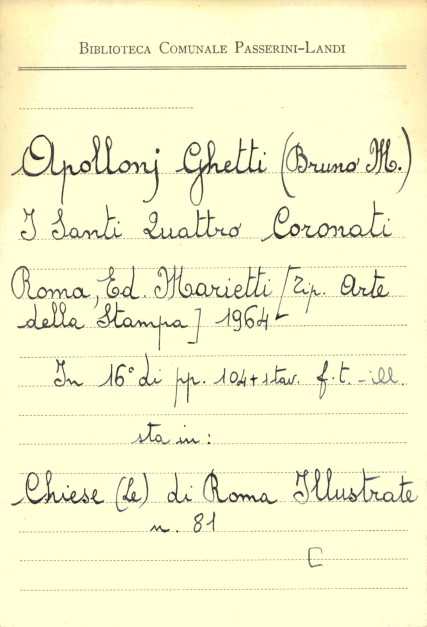 BIBLIOTECA COMUNALE PASSERINI-LANDI
Apollonj Ghetti (Bruno M.)
I Santi Quattro Coronati
Roma, Ed. Marietti [Tip. Arte
della Stampa] 1964
In 16° di pp. 104+1 tav. f.t. - ill.
sta in:
Chiese (Le) di Roma Illustrate
n. 81
C